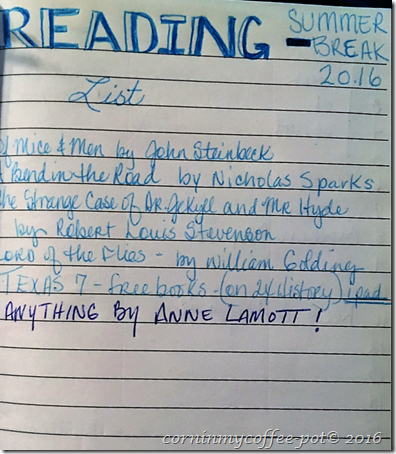 READING - SUMMER
BREAK
2016
List
Of Mice & Men by John Steinbeck
A Bend in the Road by Nicholas Sparks
The Strange Case of Dr. Jekyll and Mr Hyde
by Robert Louis Stevenson
LORD of the Flies - by William Golding
TEXAS 7 - free books - (on 24 History) ipad
ANYTHING BY ANNE LAMOTT!
corninmycoffee-pot© 2016